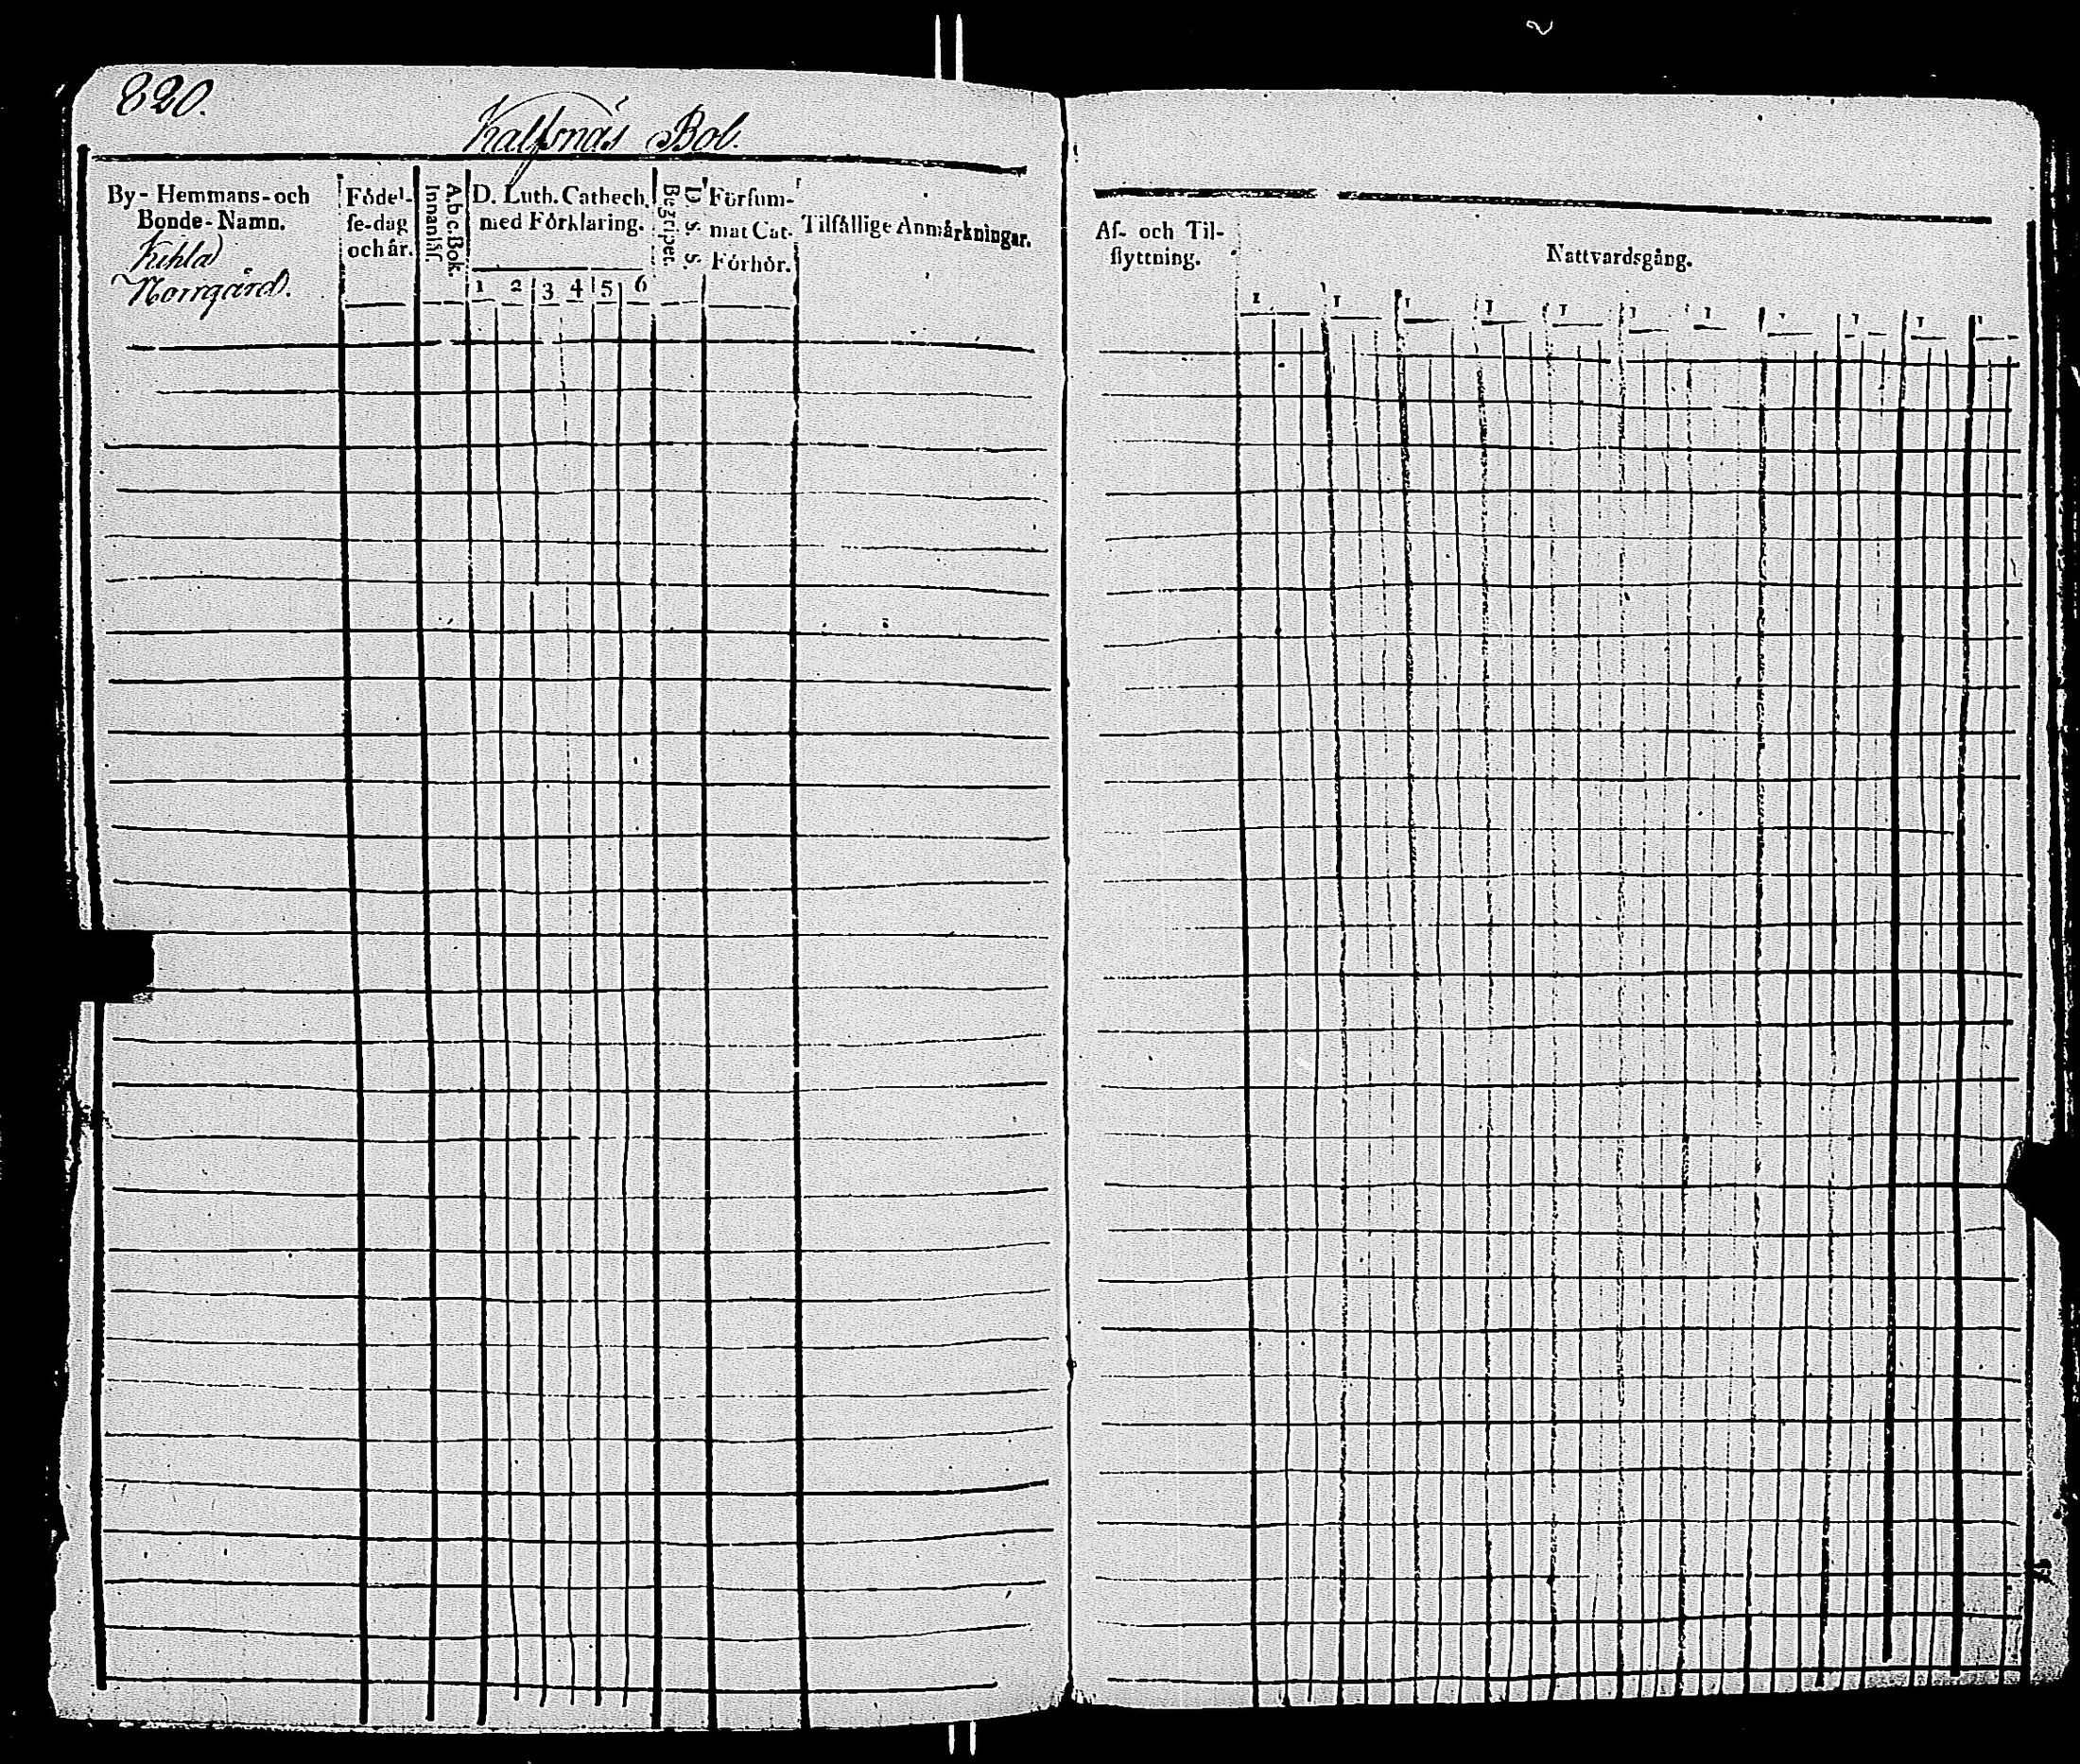 820.
Kalfsnäs Bol.
By- Hemmans- och
Bonde- Namn.
Kihla
Norrgård.
Födel-
se-dag
och år.
Innanläs.
A.b c. Bok.
D. Luth. Cathech.
med Förklaring.
1 2 3 4 5 6
Begripet.
D. S. S.
Försum-
mat Cat.
Förhör.
Tilfällige Anmärkningar.
Af- och Til-
flyttning.
Nattvardsgång.
1 1 1 1 1 1 1 1 1 1 1